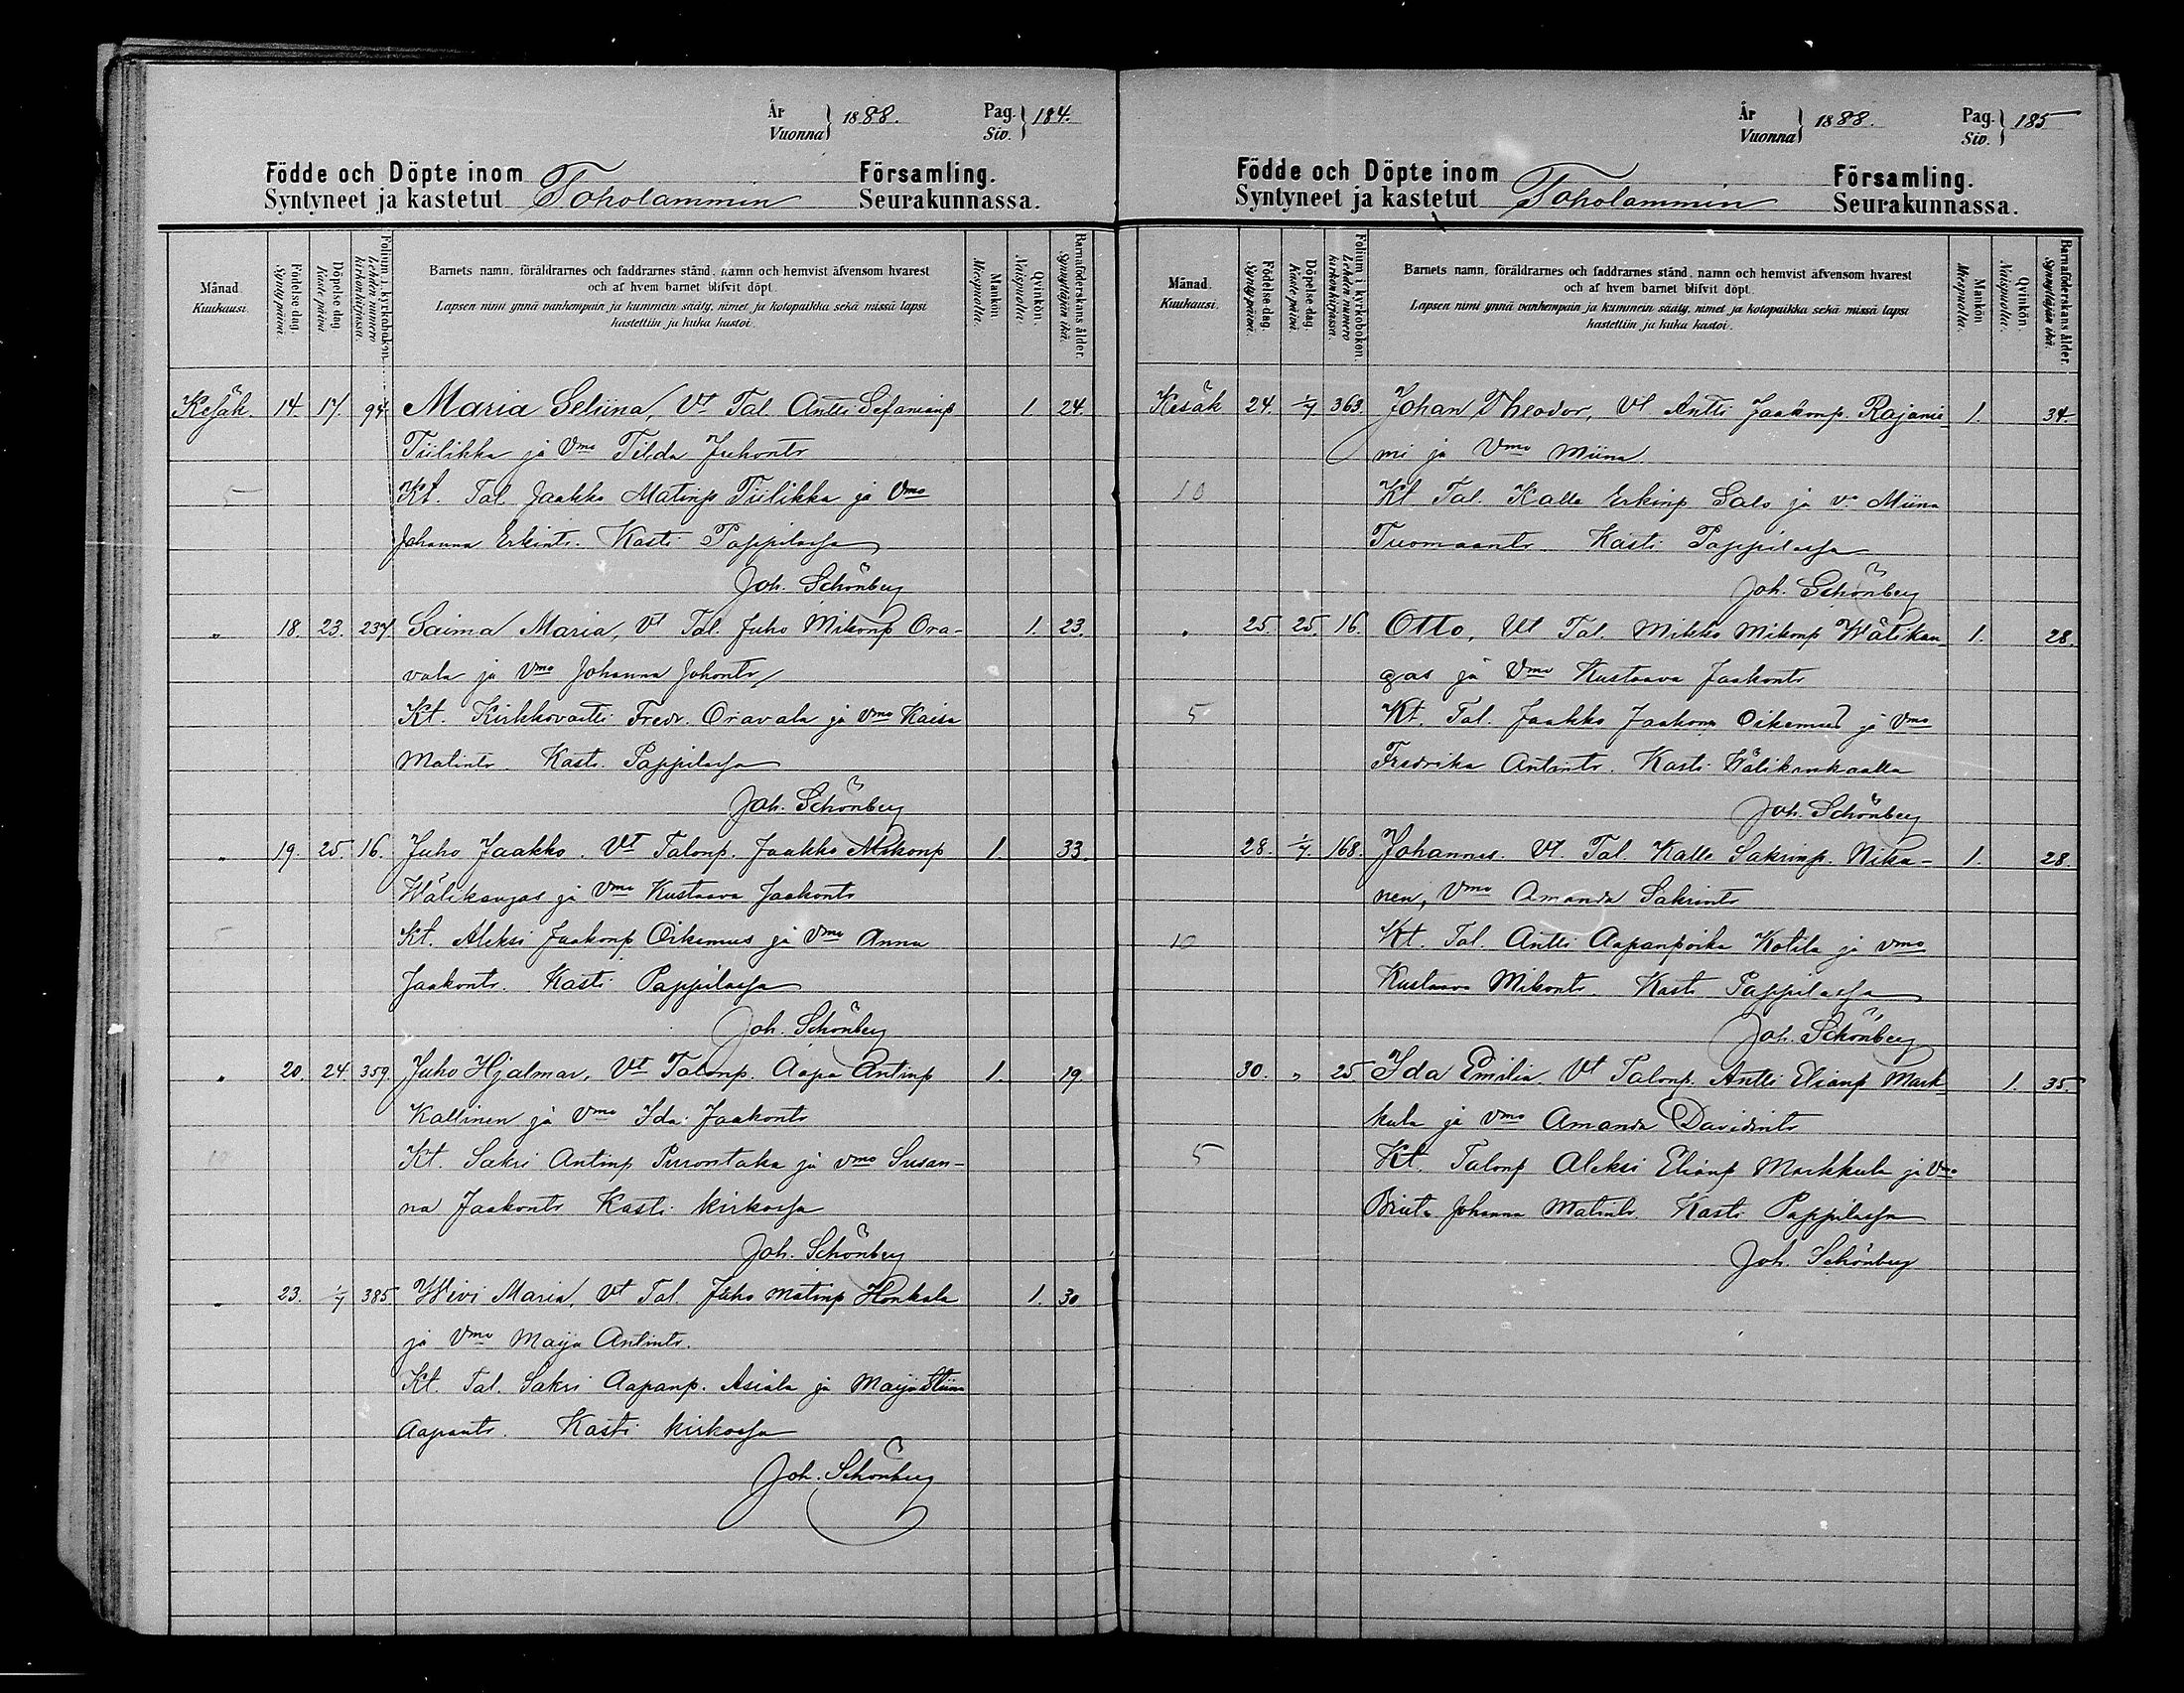 År
Vuonna } 1888. Pag.
Siv. } 184.
Födde och Döpte inom Toholammin Församling.
Syntyneet ja kastetut Seurakunnassa.
Månad. Kuukausi.
Födelse dag. Syntypäivä.
Döpelse dag Kastepäivä.
Folium i kyrkoboken. Lehden numero kirkonkirjassa.
Barnets namn, föräldrarnes och faddrarnes stånd, namn och hemvist äfvensom hvarest
och af hvem barnet blifvit döpt.
Lapsen nimi ynnä vanhempain ja kummein sääty, nimet ja kotopaikka sekä missä lapsi
kastettiin ja kuka kastoi.
Mankön Miespuolta.
Qvinkön. Naispuolta.
Barnaföderskans ålder. Synnyttäjän ikä.
Kesäk. 14. 17. 94. Maria Seliina, Vt Tal Antti Sefaninp 1 24.
Tiilikka ja Vmo Tilda Juhontr
5 Kt. Tal. Jaakko Matinp Tiilikka ja Vmo
Johanna Erkintr. Kasti Pappilassa
Joh. Schönberg
" 18. 23. 237. Saima Maria, Vt Tal. Juho Mikonp Ora- 1. 23.
vala ja Vmo Johanna Johontr
Kt. Kirkkovartti Fredr. Oravala ja Vmo Kaisa
Matintr Kasti Pappilassa
Joh. Schönberg
" 19. 25. 16. Juho Jaakko. Vt Talonp. Jaakko Mikonp 1. 33.
Wälikangas ja Vmo Kustaava Jaakontr
5 Kt. Aleksi Jaakonp Oikemus ja Vmo Anna
Jaakontr. Kasti Pappilassa
Joh. Schönberg
" 20. 24. 359. Juho Hjalmar, Vt Talonp. Aapo Antinp 1. 19.
Kallinen ja Vmo Ida Jaakontr
10 Kt. Sakri Antinp Purontaka ja Vmo Susan-
na Jaakontr Kasti kirkossa
Joh. Schönberg
" 23. 1/7 385. Wivi Maria, Vt Tal. Juho Matinp Honkala 1. 30
ja Vmo Maija Antintr.
Kt. Tal. Sakri Aapanp. Asiala ja Maija Stiina
Aapantr. Kasti kirkossa
Joh. Schönberg
År
Vuonna } 1888. Pag.
Siv. } 185
Födde och Döpte inom Toholammin Församling.
Syntyneet ja kastetut Seurakunnassa.
Månad. Kuukausi.
Födelse dag. Syntypäivä.
Döpelse dag. Kastepäivä.
Folium i kyrkobokon. Lehden numero kirkonkirjassa.
Barnets namn, föräldrarnes och faddrarnes stånd, namn och hemvist äfvensom hvarest
och af hvem barnet blifvit döpt.
Lapsen nimi ynnä vanhempain ja kummein sääty, nimet ja kotopaikka sekä missä lapsi
kastettiin ja kuka kastoi.
Mankön Miespuolta.
Qvinkön. Naispuolta.
Barnaföderskans ålder. Synnyttäjän ikä.
Kesäk 24. 1/7 363. Johan Theodor, Vt Antti Jaakonp. Rajanie- 1. 34.
mi ja Vmo Miina
10 Kt Tal. Kalle Erkinp Salo ja V. Miina
Tuomaantr Kasti Pappilassa
Joh. Schönberg
" 25. 25. 16. Otto, Vt Tal. Mikko Mikonp Wälikan- 1. 28.
gas ja Vmo Kustaava Jaakontr
5 Kt. Tal. Jaakko Jaakonp Oikemus ja Vmo
Fredrika Antintr. Kasti Wälikankaalla
Joh. Schönberg
28. 1/7. 168. Johannes. Vt. Tal. Kalle Sakrinp. Nika- 1. 28.
nen, Vmo Amanda Sakrintr
10 Kt. Tal. Antti Aapanpoika Kotila ja Vmo
Kustaava Mikontr. Kasti Pappilassa
Joh. Schönberg
30. " 25. Ida Emilia. Vt Talonp. Antti Elianp Mark- 1. 35.
kula ja Vmo Amanda Davidintr
5 Kt. Talonp Aleksi Elianp Markkula ja Vmo
Briita Johanna Matintr. Kasti Pappilassa
Joh. Schönberg